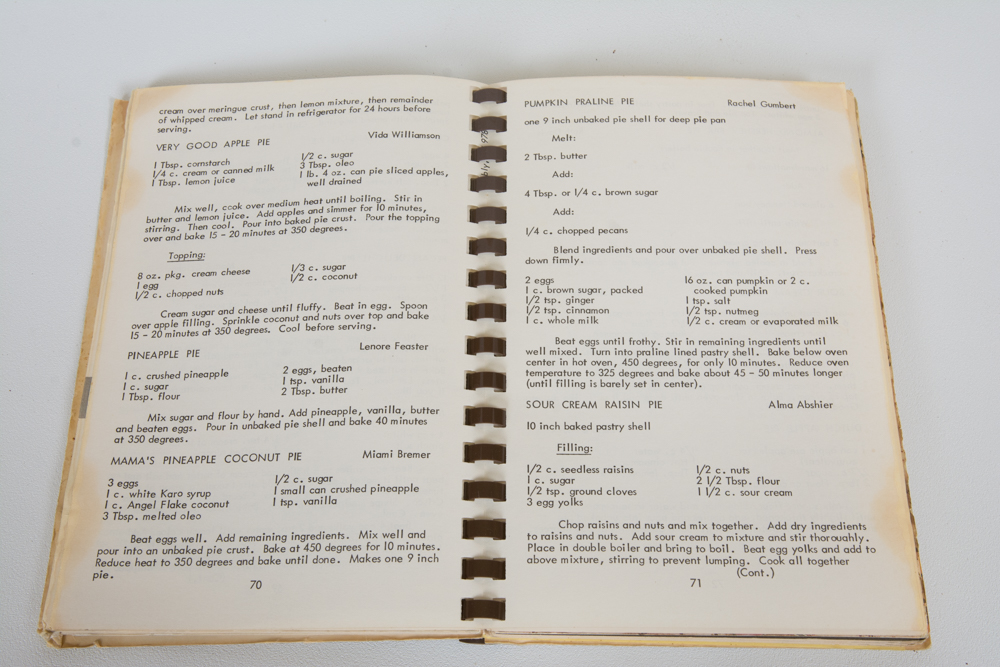 cream over meringue crust, then lemon mixture, then remainder
of whipped cream. Let stand in refrigerator for 24 hours before
serving.
VERY GOOD APPLE PIE Vida Williamson
1 Tbsp. cornstarch 1/2 c. sugar
1/4 c. cream or canned milk 3 Tbsp. oleo
1 Tbsp. lemon juice 1 lb. 4 oz. can pie sliced apples,
well drained
Mix well, cook over medium heat until boiling. Stir in
butter and lemon juice. Add apples and simmer for 10 minutes,
stirring. Then cool. Pour into baked pie crust. Pour the topping
over and bake 15 - 20 minutes at 350 degrees.
Topping:
8 oz. pkg. cream cheese 1/3 c. sugar
1 egg 1/2 c. coconut
1/2 c. chopped nuts
Cream sugar and cheese until fluffy. Beat in egg. Spoon
over apple filling. Sprinkle coconut and nuts over top and bake
15 - 20 minutes at 350 degrees. Cool before serving.
PINEAPPLE PIE Lenore Feaster
1 c. crushed pineapple 2 eggs, beaten
1 c. sugar 1 tsp. vanilla
1 Tbsp. flour 2 Tbsp. butter
Mix sugar and flour by hand. Add pineapple, vanilla, butter
and beaten eggs. Pour in unbaked pie shell and bake 40 minutes
at 350 degrees.
MAMA'S PINEAPPLE COCONUT PIE Miami Bremer
3 eggs 1/2 c. sugar
1 c. white Karo syrup 1 small can crushed pineapple
1 c. Angel Flake coconut 1 tsp. vanilla
3 Tbsp. melted oleo
Beat eggs well. Add remaining ingredients. Mix well and
pour into an unbaked pie crust. Bake at 450 degrees for 10 minutes.
Reduce heat to 350 degrees and bake until done. Makes one 9 inch
pie.
70
PUMPKIN PRALINE PIE Rachel Gumbert
one 9 inch unbaked pie shell for deep pie pan
Melt:
2 Tbsp. butter
Add:
4 Tbsp. or 1/4 c. brown sugar
Add:
1/4 c. chopped pecans
Blend ingredients and pour over unbaked pie shell. Press
down firmly.
2 eggs 16 oz. can pumpkin or 2 c.
1 c. brown sugar, packed cooked pumpkin
1/2 tsp. ginger 1 tsp. salt
1/2 tsp. cinnamon 1/2 tsp. nutmeg
1 c. whole milk 1/2 c. cream or evaporated milk
Beat eggs until frothy. Stir in remaining ingredients until
well mixed. Turn into praline lined pastry shell. Bake below oven
center in hot oven, 450 degrees, for only 10 minutes. Reduce oven
temperature to 325 degrees and bake about 45 - 50 minutes longer
(until filling is barely set in center).
SOUR CREAM RAISIN PIE Alma Abshier
10 inch baked pastry shell
Filling:
1/2 c. seedless raisins 1/2 c. nuts
1 c. sugar 2 1/2 Tbsp. flour
1/2 tsp. ground cloves 1 1/2 c. sour cream
3 egg yolks
Chop raisins and nuts and mix together. Add dry ingredients
to raisins and nuts. Add sour cream to mixture and stir thoroughly.
Place in double boiler and bring to boil. Beat egg yolks and add to
above mixture, stirring to prevent lumping. Cook all together
(Cont.)
71